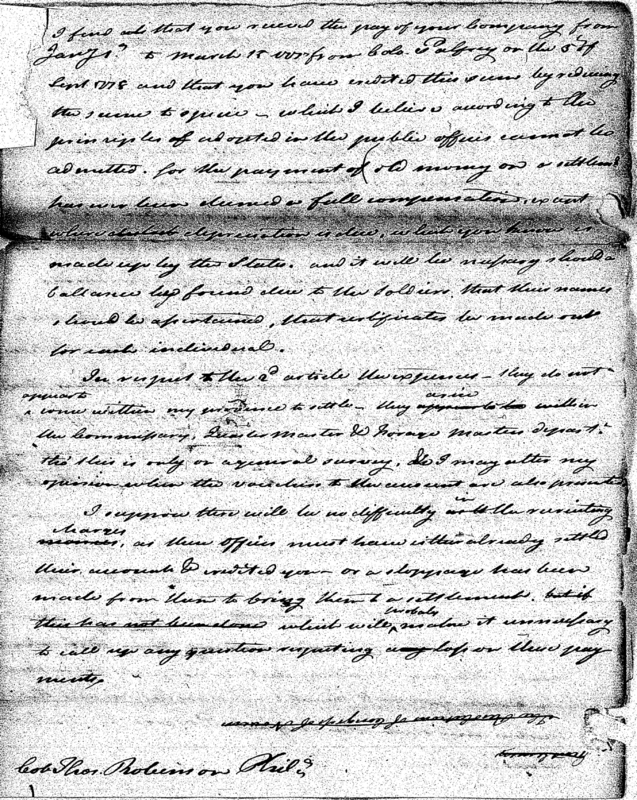 I find also that you received the pay of your Company from
Jany 1st to March 1st 1777 from Colo. Palfrey on the 5th of
Sept 1778 and that you have credited this sum by reducing
the same to specie – which I believe according to the
principles adopted in the public offices cannot be
admitted. for the payment of old money on a settlemt
has ever been deemed a full compensation, except
where depreciation is due, what you know is
made up by the States. and it will be necessary should a
ballance be found due to the soldiers that their names
should be ascertained, that certificates be made out
for each individual.
In respect to the 2d article the expenses – they do not
appear to
come within my province to settle – they appear to be within
the Commissary, Quarter Master & Forage Masters departt.
tho this is only on a general survey, & I may alter my
opinion when the vouchers to the account are also presented
I suppose there will be no difficulty in the recruiting
charges
monies, as these officers must have either already settled
their accounts & credited you – or a stoppage has been
made from them to bring them to a settlement. but if
this has not been done which will probably make it unnecessary
to call up any question respecting any loss on these pay
ments.
Colo Thos. Robinson Phila